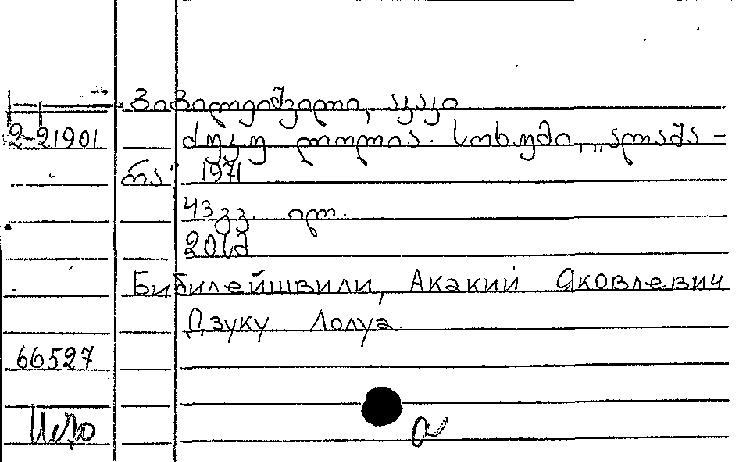 ბიბილეიშვილი, აკაკი
2-21901 ძუკუ ლოლუა. სოხუმი, „ალაშა-
რა" 1971
43 გვ. ილ.
Бибилейшвили, Акакий Яковлевич
Дзуку Лолуа
66527